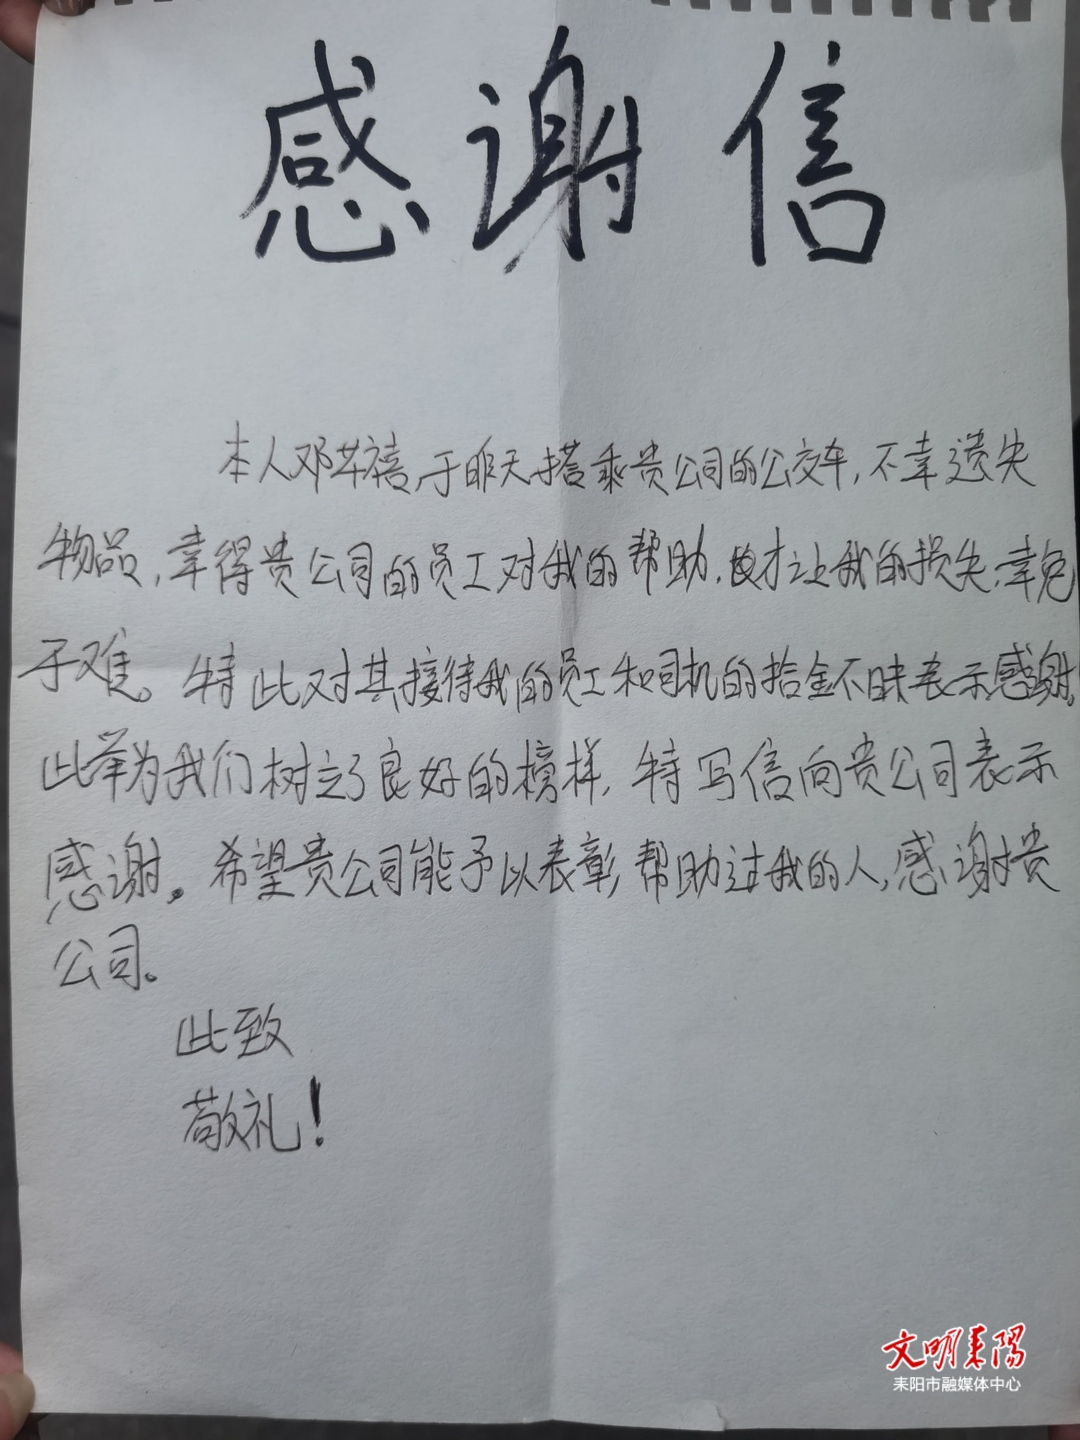 感谢信
本人邓芊禧,于昨天搭乘贵公司的公交车,不幸遗失
物品,幸得贵公司的员工对我的帮助,才让我的损失,幸免
于难。特此对其接待我的员工和司机的拾金不昧表示感谢,
此举为我们树立了良好的榜样,特写信向贵公司表示
感谢。希望贵公司能予以表彰,帮助过我的人,感谢贵
公司。
此致
敬礼!
文明耒阳
耒阳市融媒体中心